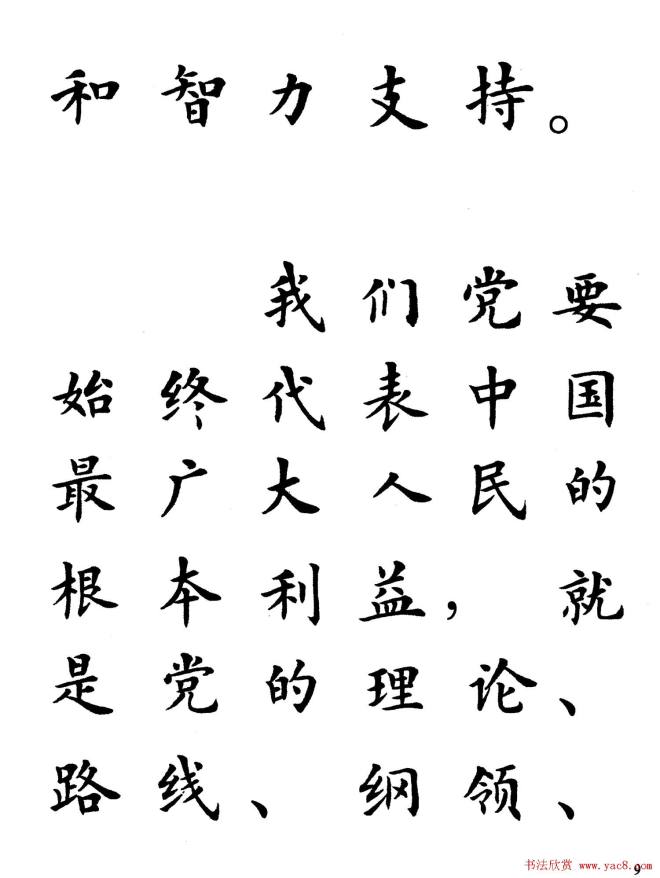 和智力支持。
我们党要
始终代表中国
最广大人民的
根本利益，就
是党的理论、
路线、纲领、
9
书法欣赏 www.yac8.com